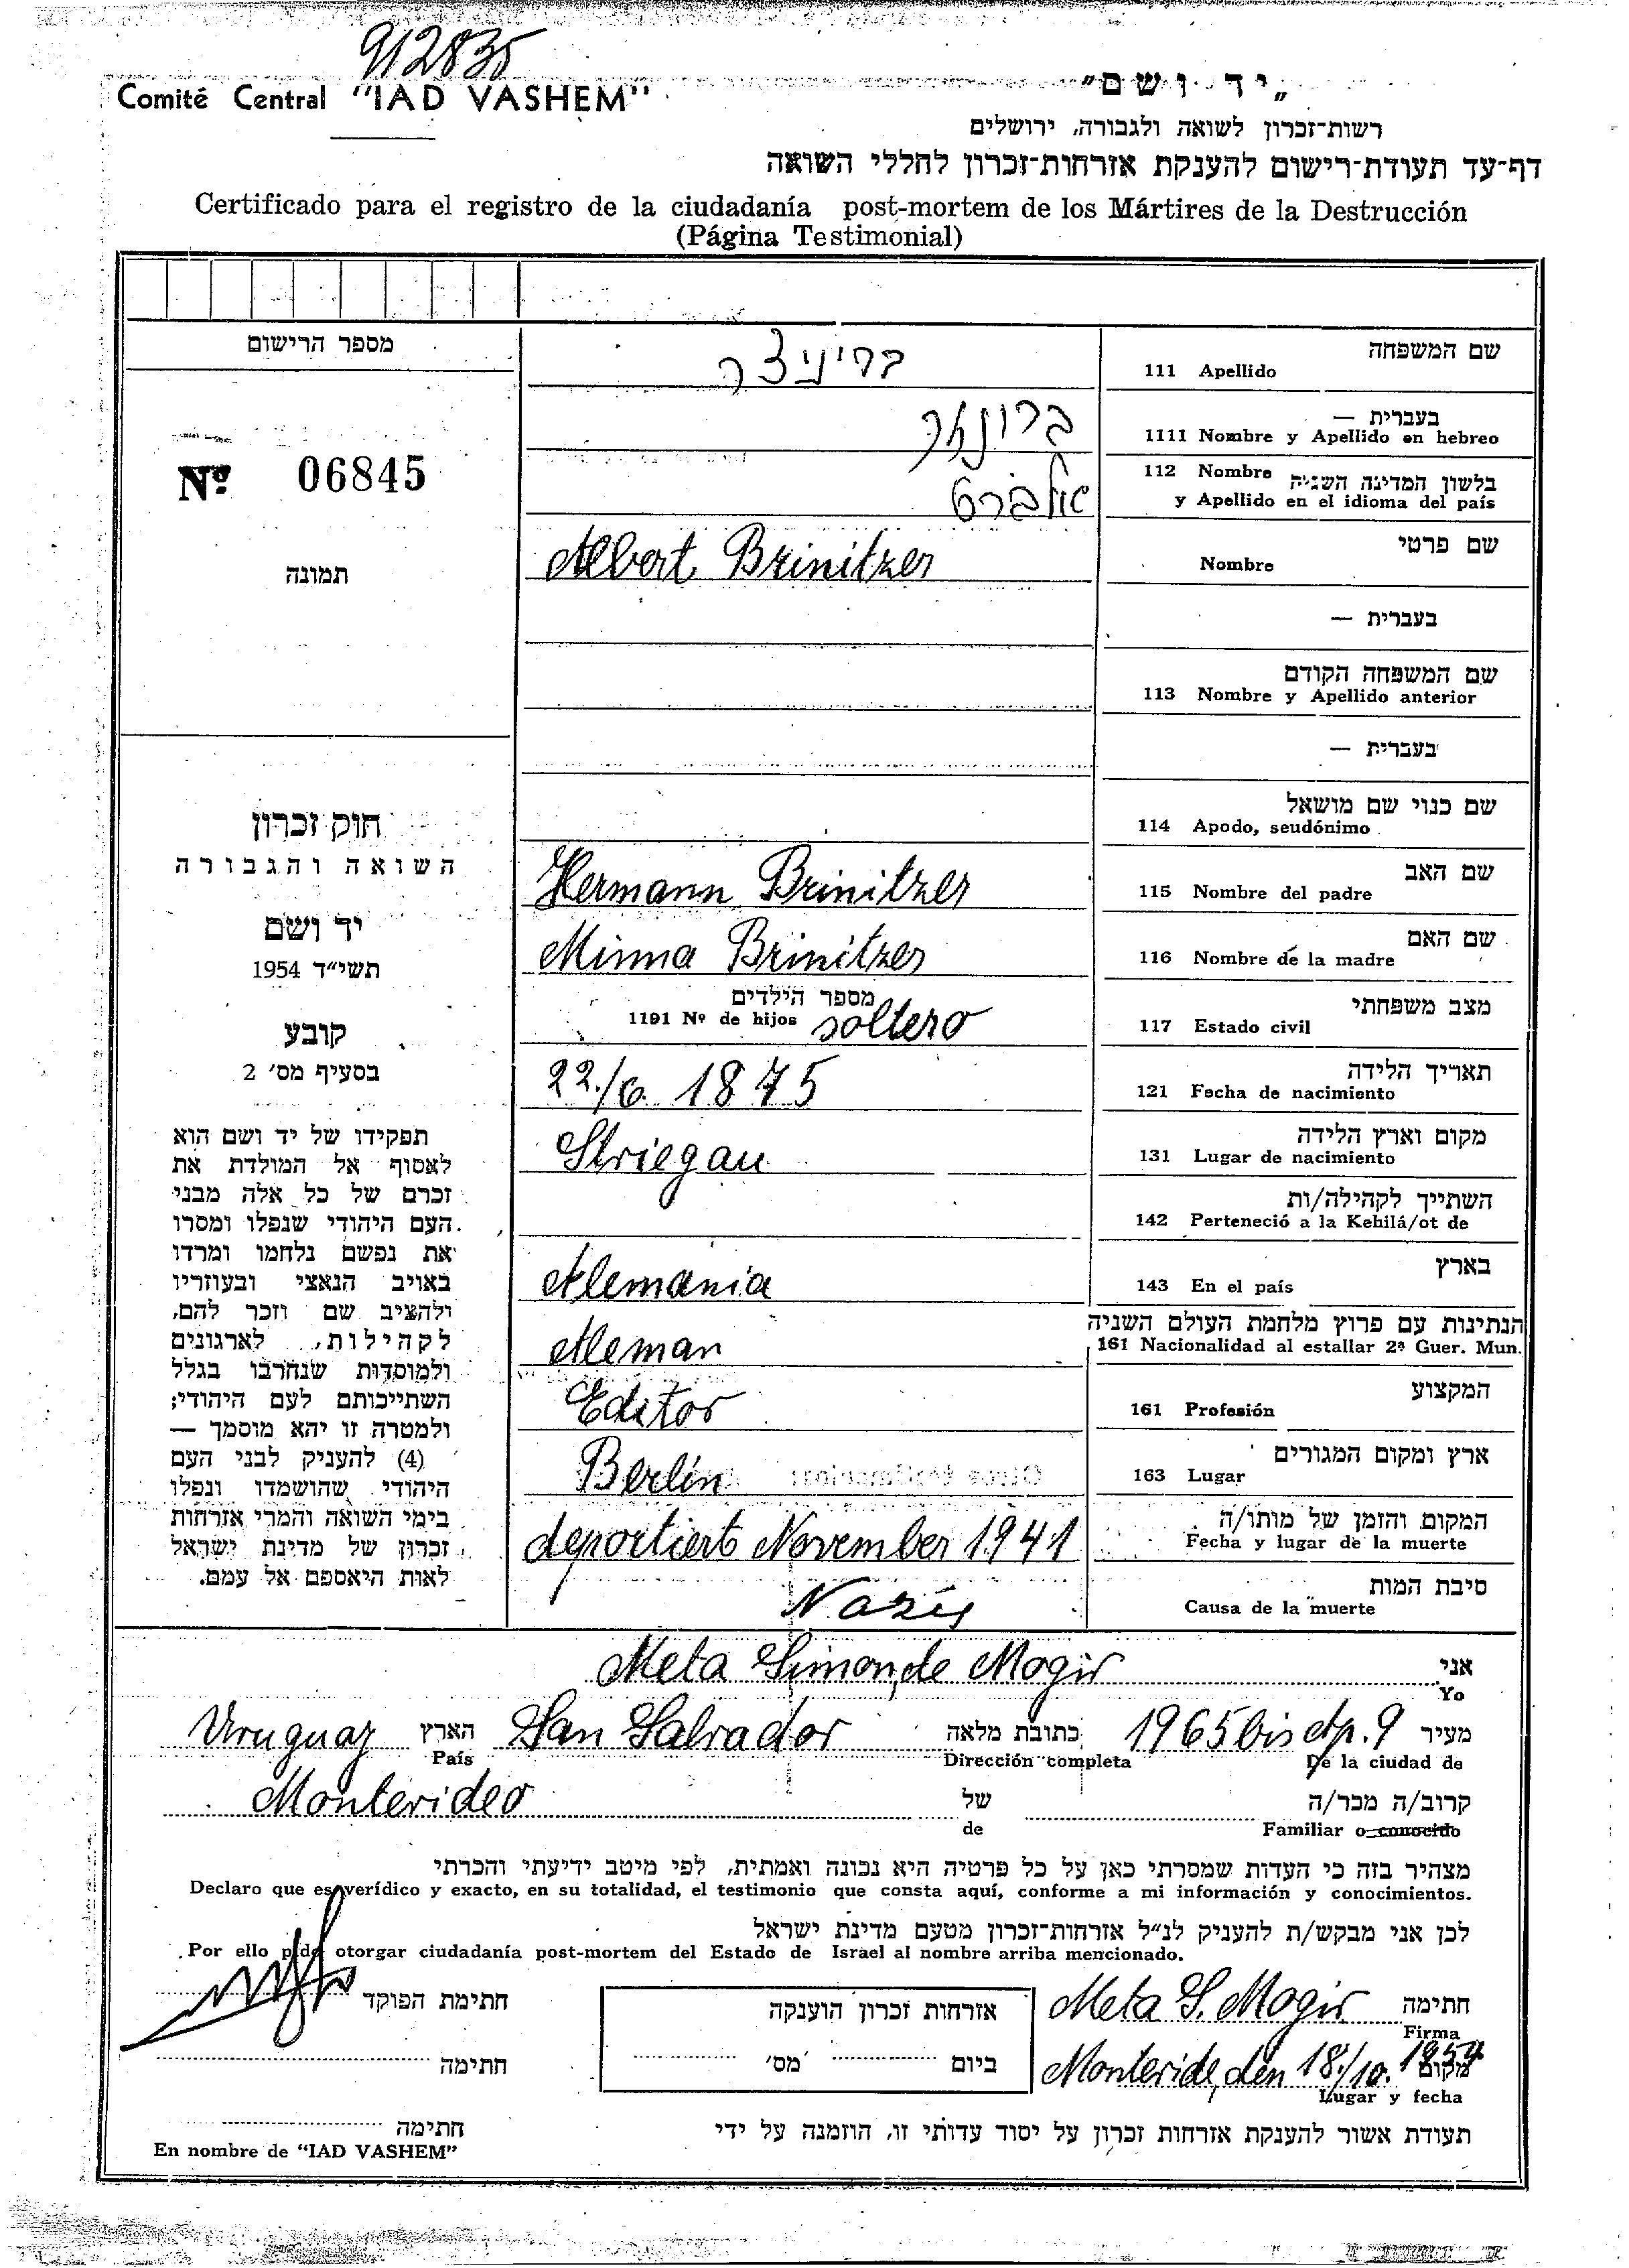 912835
Comité Central "IAD VASHEM"
„יד ושם"
רשות־זכרון לשואה ולגבורה, ירושלים
דף־עד תעודת־רישום להענקת אזרחות־זכרון לחללי השואה
Certificado para el registro de la ciudadanía post-mortem de los Mártires de la Destrucción
(Página Testimonial)
מספר הרישום
Nº 06845
תמונה
חוק זכרון
השואה והגבורה
יד ושם
תשי״ד 1954
קובע
בסעיף מס׳ 2
תפקידו של יד ושם הוא
לאסוף אל המולדת את
זכרם של כל אלה מבני
העם היהודי שנפלו ומסרו
את נפשם נלחמו ומרדו
באויב הנאצי ובעוזריו
ולהציב שם וזכר להם,
לקהילות, לארגונים
ולמוסדות שנחרבו בגלל
השתייכותם לעם היהודי;
ולמטרה זו יהא מוסמך —
(4) להעניק לבני העם
היהודי שהושמדו ונפלו
בימי השואה והמרי אזרחות
זכרון של מדינת ישראל
לאות היאספם אל עמם.
שם המשפחה
111 Apellido
בריניצר
בעברית —
1111 Nombre y Apellido en hebreo
112 Nombre בלשון המדינה השניה
y Apellido en el idioma del país
אלברט
שם פרטי
Nombre
Albert Brinitzer
בעברית —
שם המשפחה הקודם
113 Nombre y Apellido anterior
בעברית —
שם כנוי שם מושאל
114 Apodo, seudónimo
שם האב
115 Nombre del padre
Hermann Brinitzer
שם האם
116 Nombre de la madre
Minna Brinitzer
מצב משפחתי
117 Estado civil
מספר הילדים
1191 Nº de hijos soltero
תאריך הלידה
121 Fecha de nacimiento
22./6. 1875
מקום וארץ הלידה
131 Lugar de nacimiento
Striegau
השתייך לקהילה/ות
142 Perteneció a la Kehilá/ot de
בארץ
143 En el país
Alemania
הנתינות עם פרוץ מלחמת העולם השניה
161 Nacionalidad al estallar 2ª Guer. Mun.
Aleman
המקצוע
161 Profesión
Editor
ארץ ומקום המגורים
163 Lugar
Berlin
המקום והזמן של מותו/ה
Fecha y lugar de la muerte
deportiert November 1941
סיבת המות
Causa de la muerte
Nazis
אני
Yo
Meta Simon de Mogir
מעיר 1965 bis Ap. 9 כתובת מלאה San Salvador הארץ Uruguay
País Dirección completa De la ciudad de
Montevideo
קרוב/ה מכר/ה של
Familiar o conocido de
מצהיר בזה כי העדות שמסרתי כאן על כל פרטיה היא נכונה ואמתית, לפי מיטב ידיעתי והכרתי
Declaro que es verídico y exacto, en su totalidad, el testimonio que consta aquí, conforme a mi información y conocimientos.
לכן אני מבקש/ת להעניק לנ״ל אזרחות־זכרון מטעם מדינת ישראל
Por ello pido otorgar ciudadanía post-mortem del Estado de Israel al nombre arriba mencionado.
חתימה
Firma
Meta S. Mogir
אזרחות זכרון הוענקה
ביום מס׳
חתימת הפוקד
חתימה
Montevide, den 18./10. 1954
מקום
Lugar y fecha
תעודת אשור להענקת אזרחות זכרון על יסוד עדותי זו, הוזמנה על ידי
חתימה
En nombre de "IAD VASHEM"